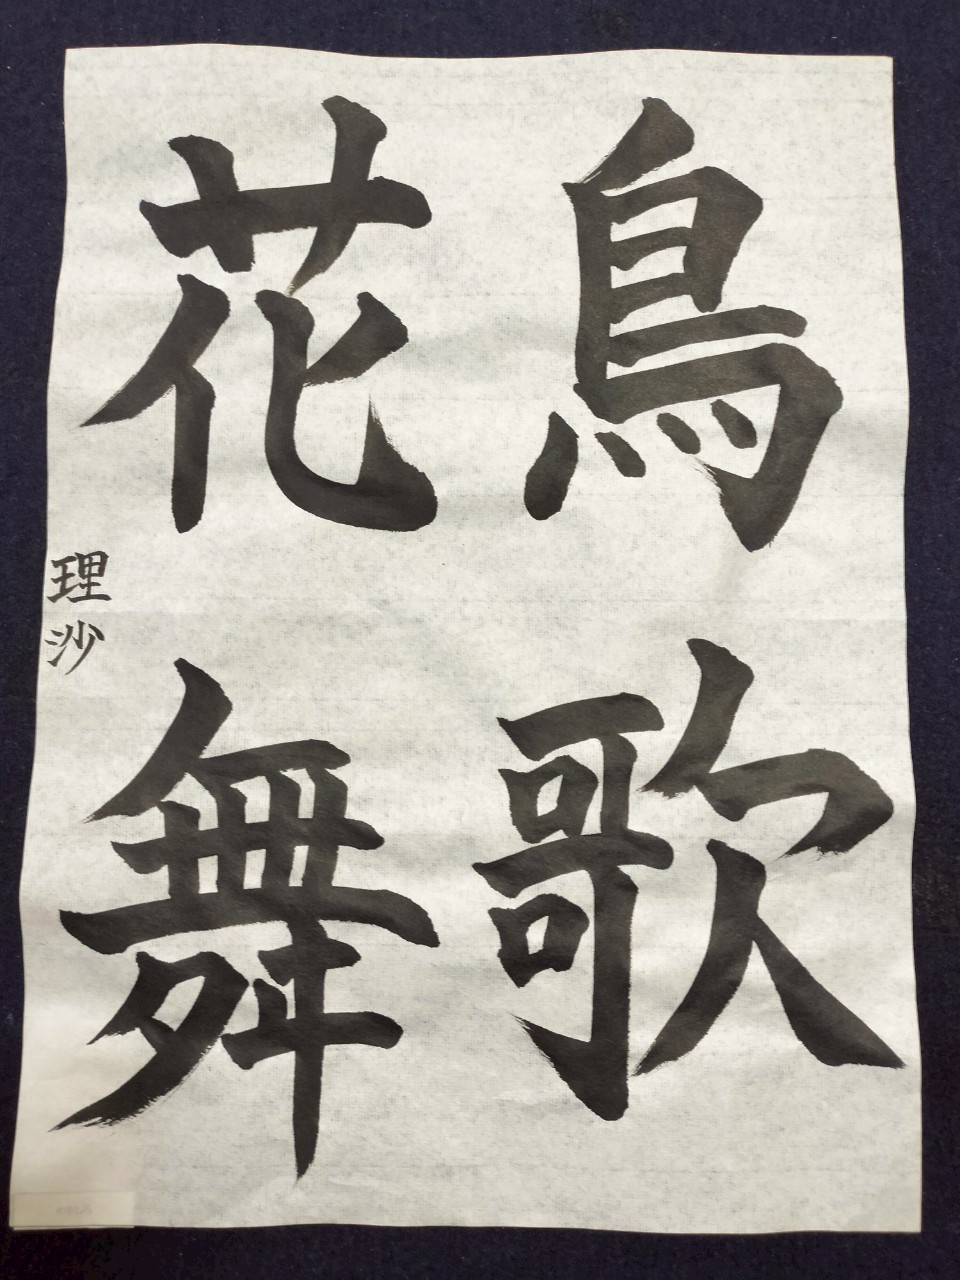 鳥歌
花舞
理沙